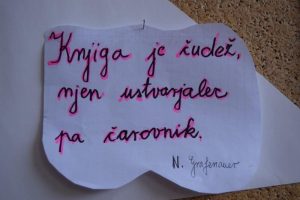 Knjiga je čudež,
njen ustvarjalec
pa čarovnik.
N. Grafenauer